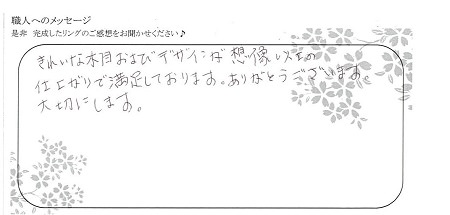 職人へのメッセージ
是非 完成したリングのご感想をお聞かせください♪
きれいな木目およびデザインが想像以上の
仕上がりで満足しております。ありがとうございます。
大切にします。